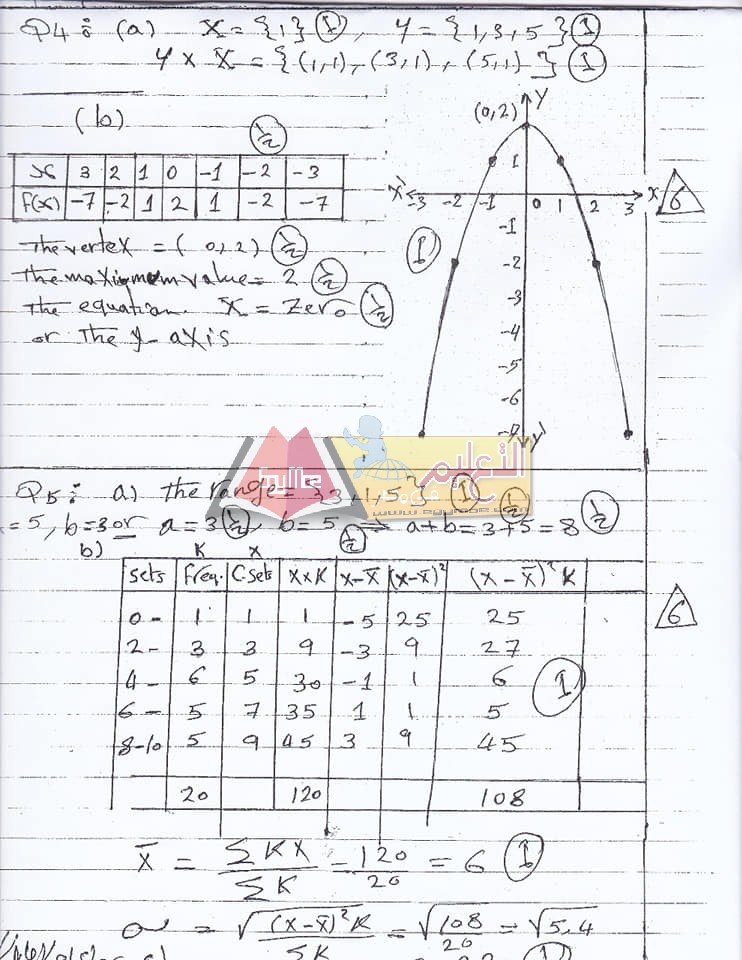 Q4: (a) X = {1} ①, Y = {1,3,5} ①
Y × X = {(1,1), (3,1), (5,1)} ①
(b)
½
x 3 2 1 0 -1 -2 -3
f(x) -7 -2 1 2 1 -2 -7
The vertex = (0,2) ½
The maximum value = 2 ½
The equation X = Zero ½
or The y-axis
(0,2) y
1
x' -3 -2 -1 0 1 2 3 x
-1
① -2
-3
-4
-5
-6
-7
y'
6
Q5: a) The range = {3,1,5} ①
= 5, b=3 or a=3 ½, b=5 ½ ⇒ a+b=3+5=8 ½
½
التعليم
www.eyyedge.com
b) K X
Sets Freq. C.Sets X×K X-X̄ (X-X̄)² (X-X̄)²K
0- 1 1 1 -5 25 25
2- 3 3 9 -3 9 27
4- 6 5 30 -1 1 6 ①
6- 5 7 35 1 1 5
8-10 5 9 45 3 9 45
20 120 108
6
X̄ = ΣKX/ΣK = 120/20 = 6 ①
σ = √((X-X̄)²K/ΣK) = √(108/20) = √5.4